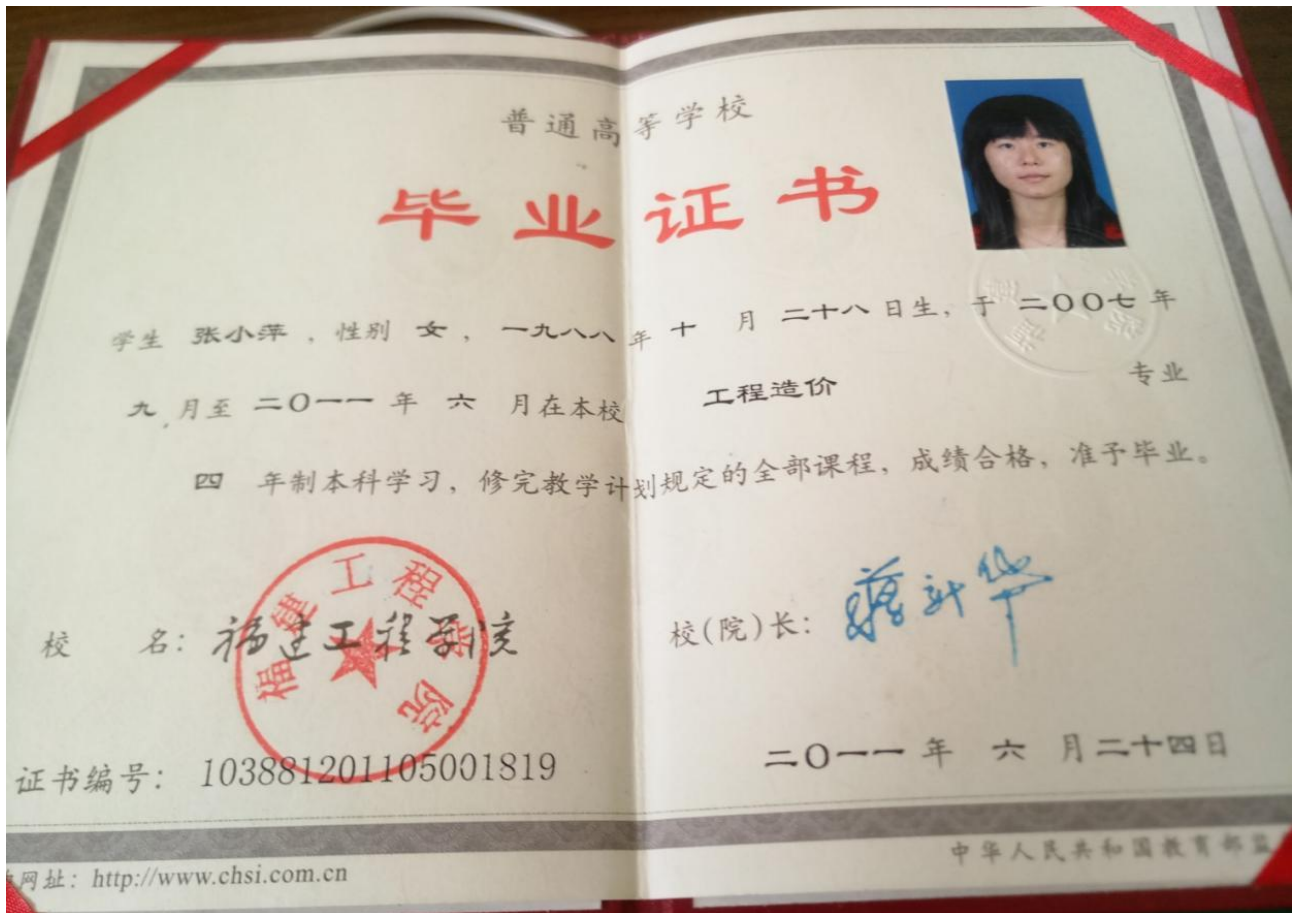 普通高等学校
毕业证书
学生 张小萍，性别 女，一九八八年 十 月 二十八日生，于 二〇〇七年
九 月至 二〇一一 年 六 月在本校 工程造价 专业
四 年制本科学习，修完教学计划规定的全部课程，成绩合格，准予毕业。
福建工程学院
校 名：福建工程学院
校(院)长：蒋新华
证书编号：103881201105001819
二〇一一 年 六 月二十四日
网址：http://www.chsi.com.cn
中华人民共和国教育部监